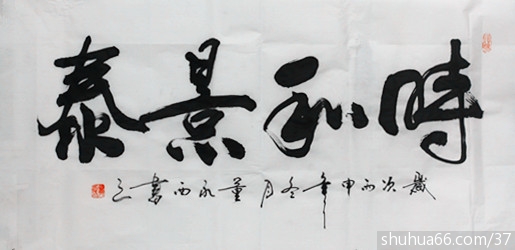 時和景泰
歲次丙申年冬月董永西書之
shuhua66.com/37